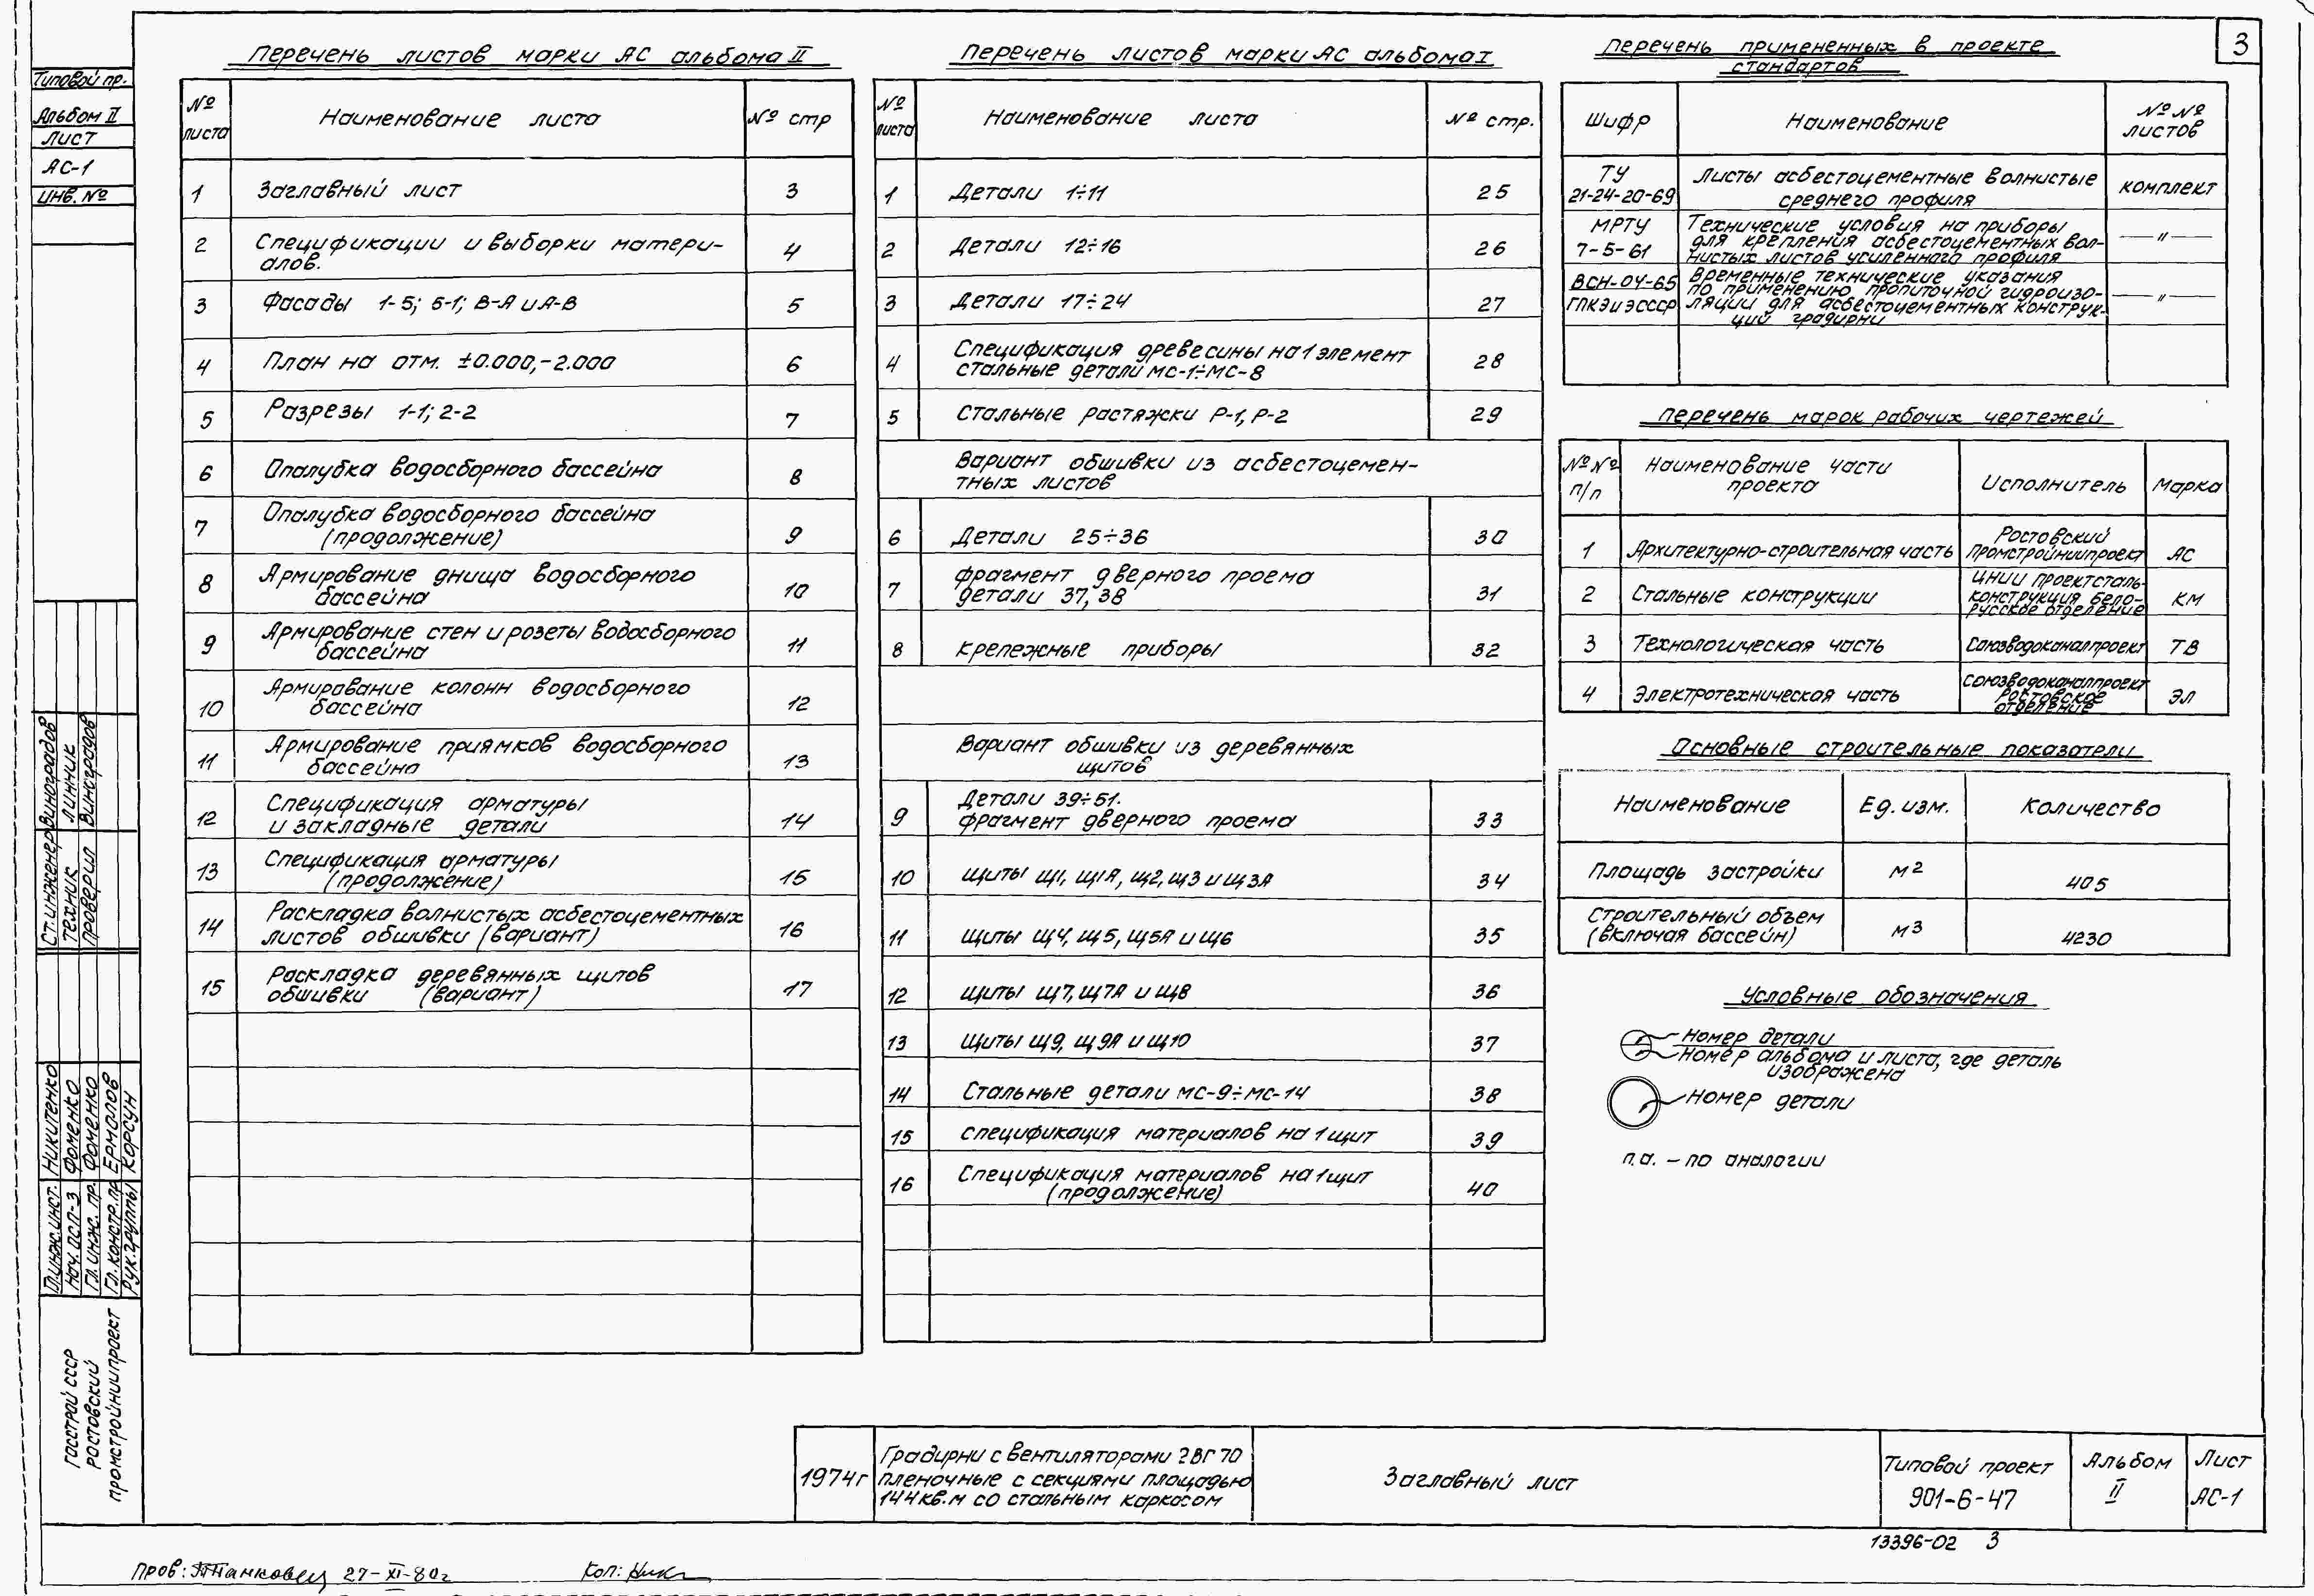 3
Типовой пр.
Альбом II
Лист
АС-1
Инв. №
Перечень листов марки АС альбома II
№ листа
Наименование листа
№ стр
1 Заглавный лист 3
2 Спецификации и выборки матери-
алов. 4
3 Фасады 1-5; 5-1; В-А и А-В 5
4 План на отм. ±0.000,-2.000 6
5 Разрезы 1-1; 2-2 7
6 Опалубка водосборного бассейна 8
7 Опалубка водосборного бассейна
(продолжение) 9
8 Армирование днища водосборного
бассейна 10
9 Армирование стен и розеты водосборного
бассейна 11
10 Армирование колонн водосборного
бассейна 12
11 Армирование приямков водосборного
бассейна 13
12 Спецификация арматуры
и закладные детали 14
13 Спецификация арматуры
(продолжение) 15
14 Раскладка волнистых асбестоцементных
листов обшивки (вариант) 16
15 Раскладка деревянных щитов
обшивки (вариант) 17
Перечень листов марки АС альбома I
№ листа
Наименование листа
№ стр.
1 Детали 1÷11 25
2 Детали 12÷16 26
3 Детали 17÷24 27
4 Спецификация древесины на 1 элемент
стальные детали МС-1÷МС-8 28
5 Стальные растяжки Р-1, Р-2 29
Вариант обшивки из асбестоцемен-
тных листов
6 Детали 25÷36 30
7 Фрагмент дверного проема
детали 37, 38 31
8 Крепежные приборы 32
Вариант обшивки из деревянных
щитов
9 Детали 39÷51.
Фрагмент дверного проема 33
10 Щиты Щ1, Щ1А, Щ2, Щ3 и Щ3А 34
11 Щиты Щ4, Щ5, Щ5А и Щ6 35
12 Щиты Щ7, Щ7А и Щ8 36
13 Щиты Щ9, Щ9А и Щ10 37
14 Стальные детали МС-9÷МС-14 38
15 Спецификация материалов на 1 щит 39
16 Спецификация материалов на 1 щит
(продолжение) 40
Перечень примененных в проекте
стандартов
Шифр
Наименование
№ №
листов
ТУ
21-24-20-69
Листы асбестоцементные волнистые
среднего профиля
комплект
МРТУ
7-5-61
Технические условия на приборы
для крепления асбестоцементных вол-
нистых листов усиленного профиля
—〃—
ВСН-04-65
ГПКЭиЭСССР
Временные технические указания
по применению пропиточной гидроизо-
ляции для асбестоцементных конструк-
ций градирни
—〃—
Перечень марок рабочих чертежей
№ №
п/п
Наименование части
проекта
Исполнитель
Марка
1 Архитектурно-строительная часть
Ростовский
Промстройниипроект
АС
2 Стальные конструкции
ЦНИИ проектсталь-
конструкция Бело-
русское отделение
КМ
3 Технологическая часть Союзводоканалпроект ТВ
4 Электротехническая часть
Союзводоканалпроект
Ростовское
отделение
ЭЛ
Основные строительные показатели
Наименование Ед. изм. Количество
Площадь застройки м2 405
Строительный объем
(включая бассейн) м3 4230
Условные обозначения
Номер детали
Номер альбома и листа, где деталь
изображена
Номер детали
п.а. – по аналогии
Ст. инженер Виноградов
Техник Линник
Проверил Виноградов
Гл. инж. инст. Никитенко
Нач. ОСП-3 Фоменко
Гл. инж. пр. Фоменко
Гл. констр. пр Ермолов
Рук. группы Корсун
Госстрой СССР
Ростовский
Промстройниипроект
1974г
Градирни с вентиляторами 2ВГ 70
пленочные с секциями площадью
144 кв.м со стальным каркасом
Заглавный лист
Типовой проект
901-6-47
Альбом
II
Лист
АС-1
13396-02 3
Пров: 27-XI-80г
Коп: